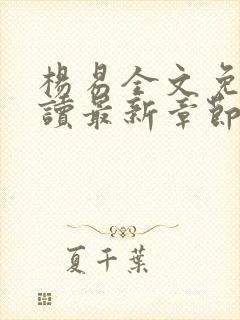 楊易全文免
讀最新章節
夏千葉